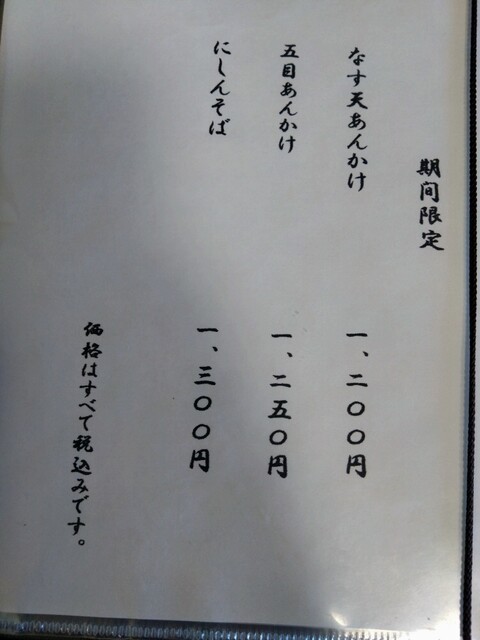 期間限定
なす天あんかけ 一、二〇〇円
五目あんかけ 一、二五〇円
にしんそば 一、三〇〇円
価格はすべて税込みです。